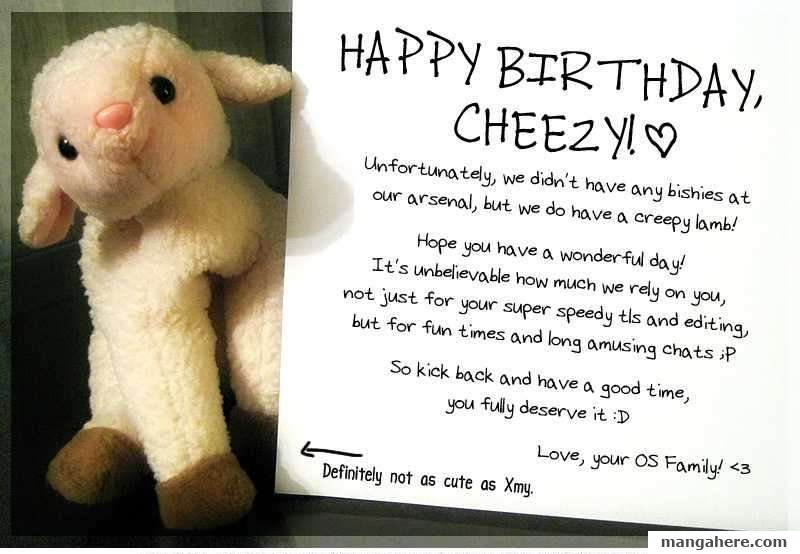 HAPPY BIRTHDAY,
CHEEZY! ♡
Unfortunately, we didn't have any bishies at
our arsenal, but we do have a creepy lamb!
Hope you have a wonderful day!
It's unbelievable how much we rely on you,
not just for your super speedy tls and editing,
but for fun times and long amusing chats ;P
So kick back and have a good time,
you fully deserve it :D
Love, your OS Family! <3
Definitely not as cute as Xmy.
mangahere.com